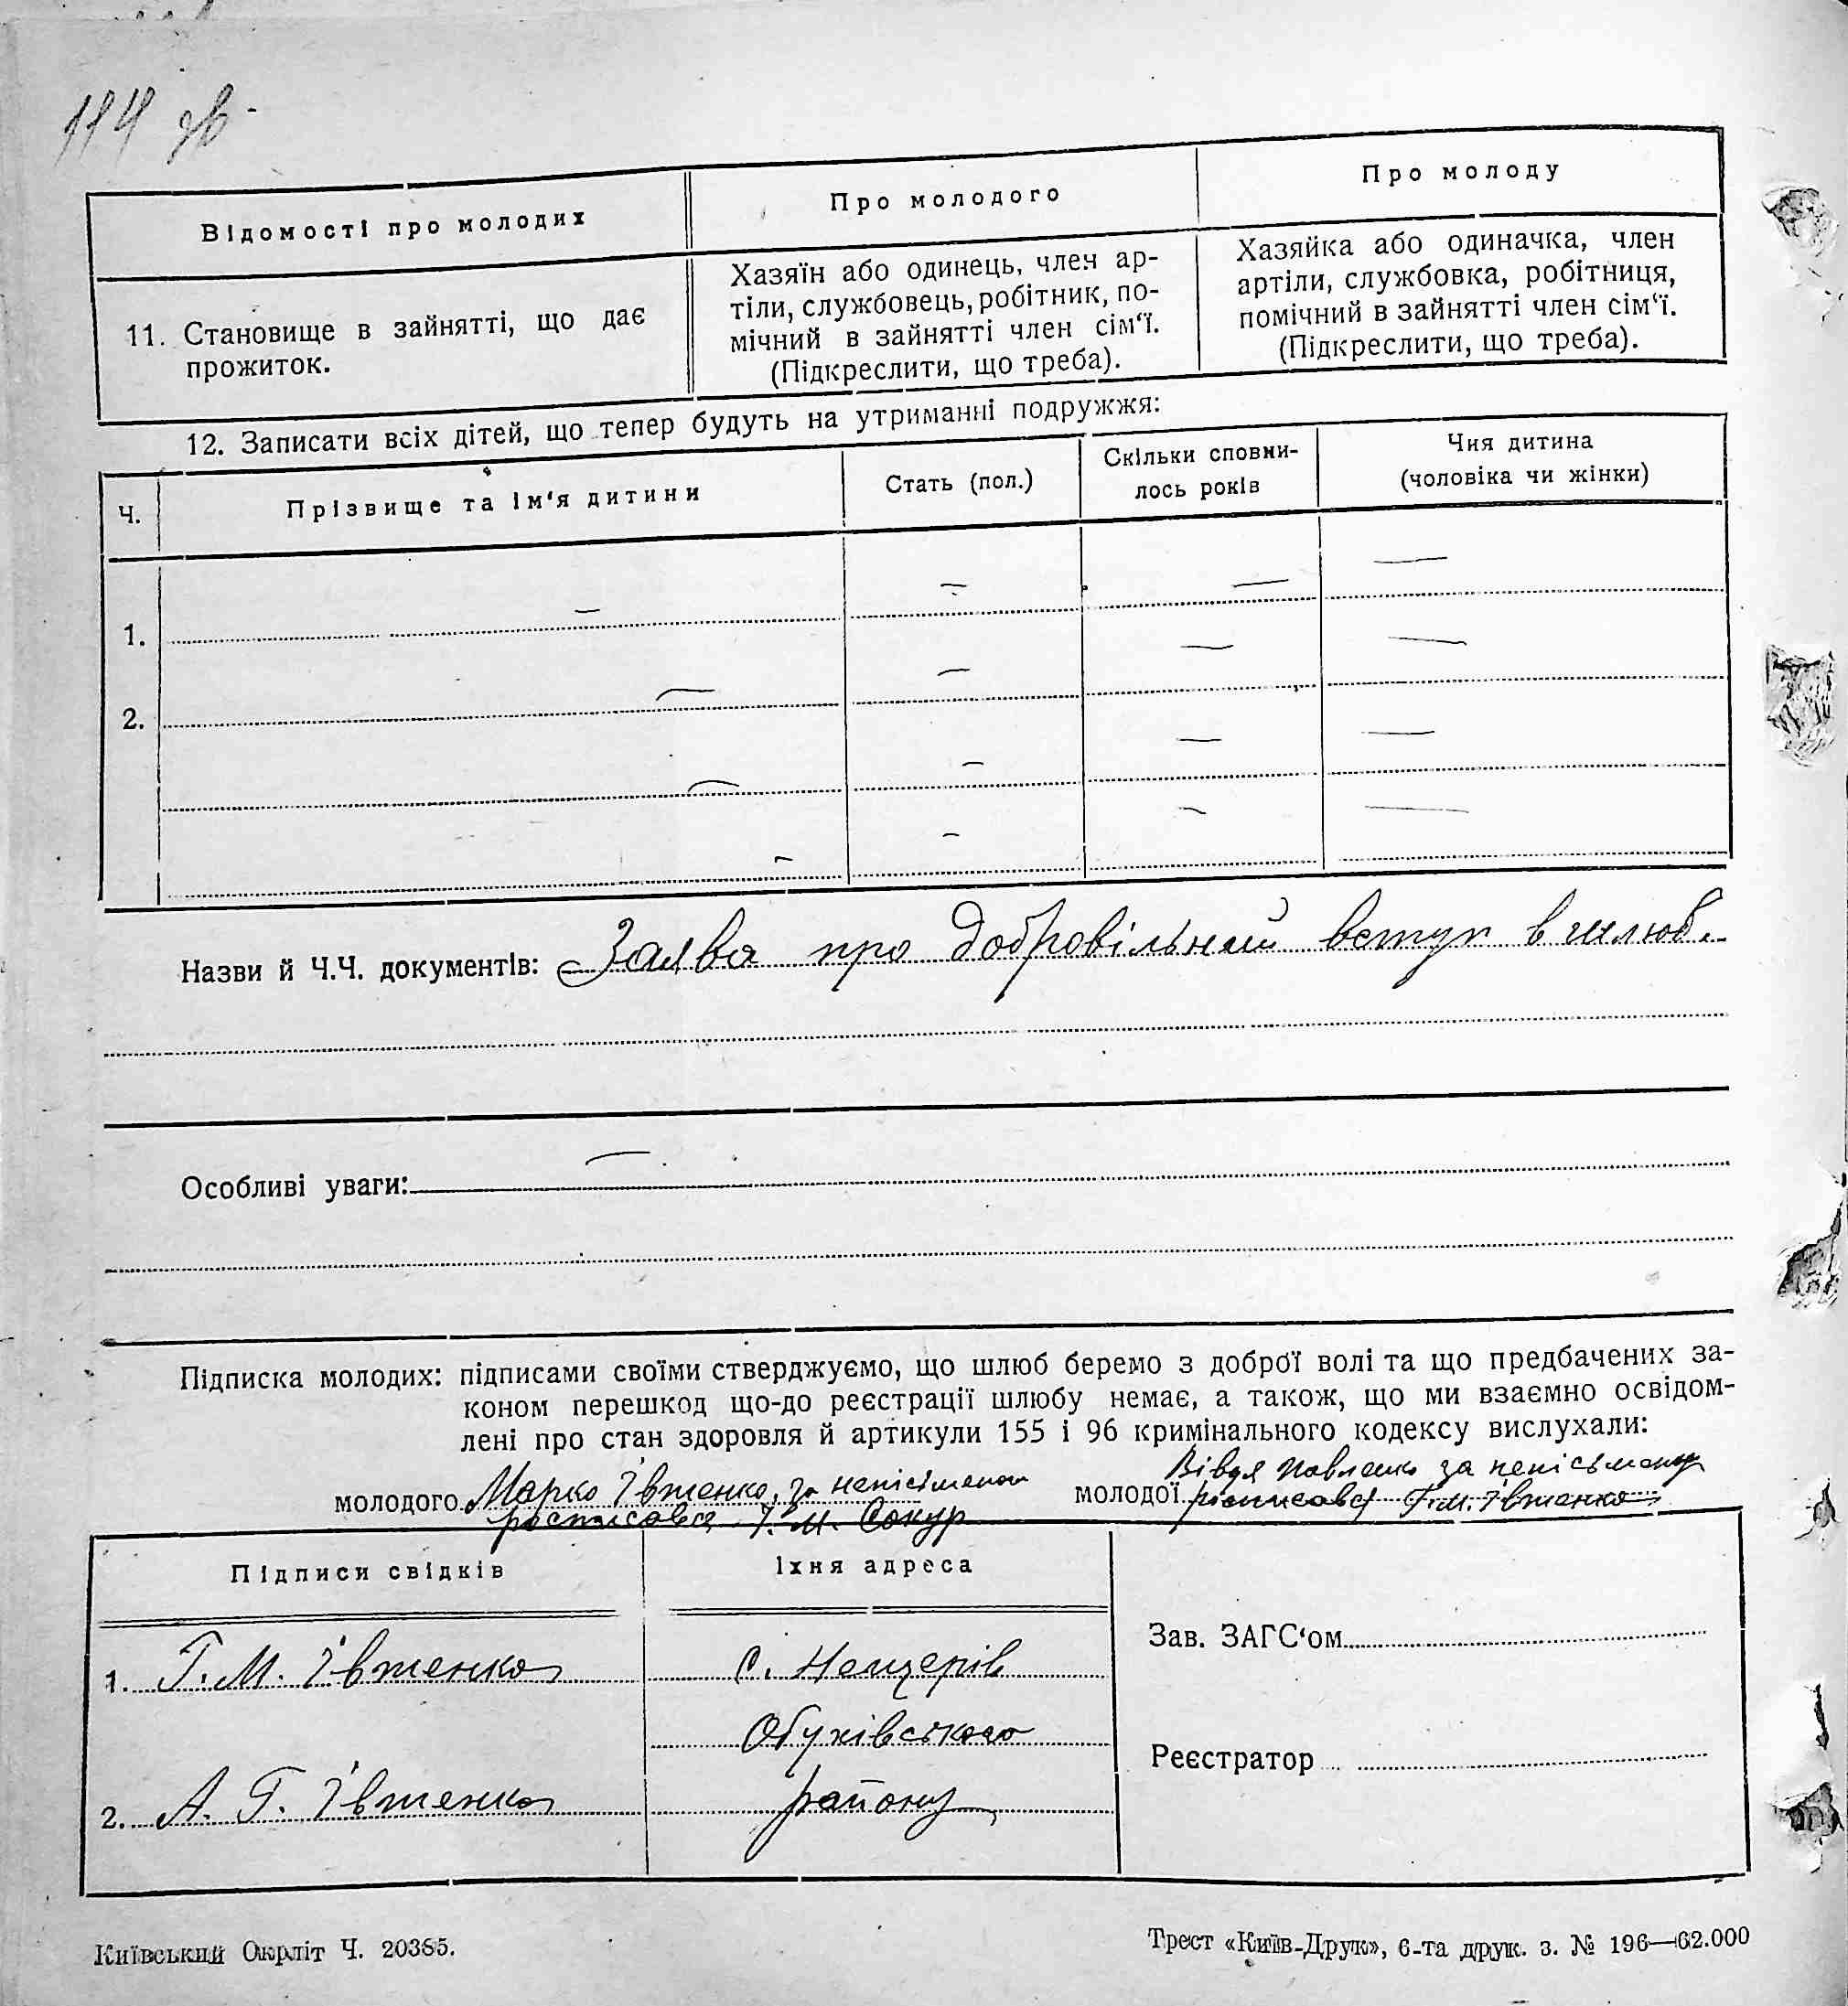 114 зв.
Відомості про молодих
Про молодого
Про молоду
11. Становище в зайнятті, що дає
прожиток.
Хазяїн або одинець, член ар-
тіли, службовець, робітник, по-
мічний в зайнятті член сім'ї.
(Підкреслити, що треба).
Хазяйка або одиначка, член
артіли, службовка, робітниця,
помічний в зайнятті член сім'ї.
(Підкреслити, що треба).
12. Записати всіх дітей, що тепер будуть на утриманні подружжя:
Ч.
Прізвище та ім'я дитини
Стать (пол.)
Скільки сповни-
лось років
Чия дитина
(чоловіка чи жінки)
1.
2.
Назви й Ч.Ч. документів: Заява про добровільний вступ в шлюб.
Особливі уваги:
Підписка молодих: підписами своїми стверджуємо, що шлюб беремо з доброї волі та що предбачених за-
коном перешкод що-до реєстрації шлюбу немає, а також, що ми взаємно освідом-
лені про стан здоровля й артикули 155 і 96 кримінального кодексу вислухали:
молодого Марко Івтенко, за непісьменого
росписався Т. М. Сокур
молодої Вівдя Павленко за непісьмену
росписався Г. М. Івтенко
Підписи свідків
Їхня адреса
1. Г. М. Івтенко
с. Нещерів
Обухівського
2. А. Г. Івтенко
району
Зав. ЗАГС'ом
Реєстратор
Київський Окрліт Ч. 20365.
Трест «Київ-Друк», 6-та друк. з. № 196—62.000